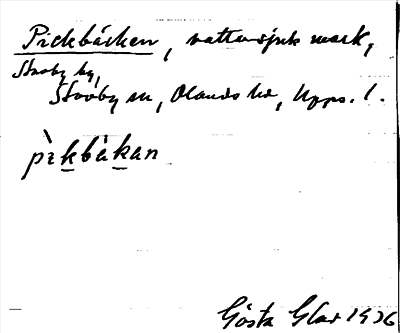 Pickbäcken, vattensjuk mark,
Stavby by,
Stavby sn, Olands hd, Upps. l.
pìkbàkan
Gösta Glas 1936